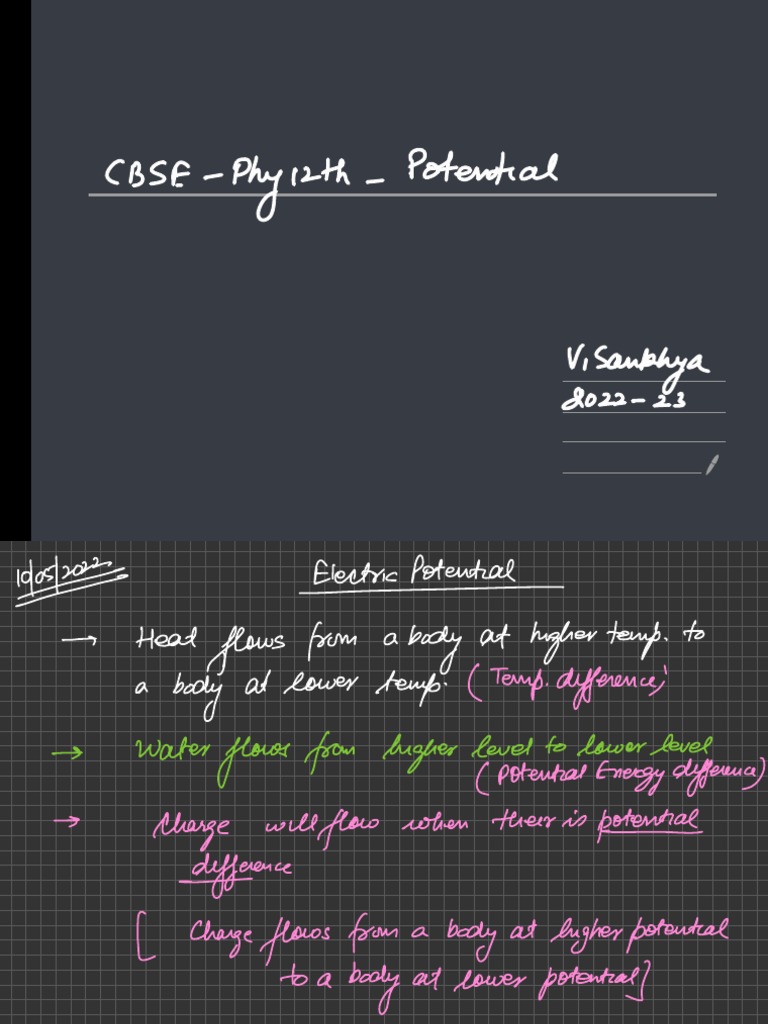 CBSE - Phy 12th - Potential
V, Sankhya
2022-23
10/05/2022
Electric Potential
→ Heat flows from a body at higher temp. to
a body at lower temp. (Temp. difference)
→ Water flows from higher level to lower level
(Potential Energy difference)
→ Charge will flow when their is potential
difference
[ Charge flows from a body at higher potential
to a body at lower potential]